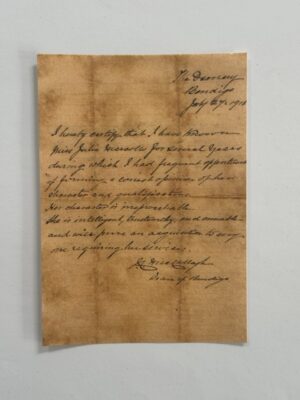 The Deanery
Bendigo
July 27. 19
I hereby certify that I have known
Miss Julia for several years
during which I had frequent opportunities
of forming a correct opinion of her
character and qualifications.
Her character is irreproachable
She is intelligent, trustworthy, and amiable
and will prove an acquisition to any
one requiring her services.
J. MacCullagh
Dean of Bendigo